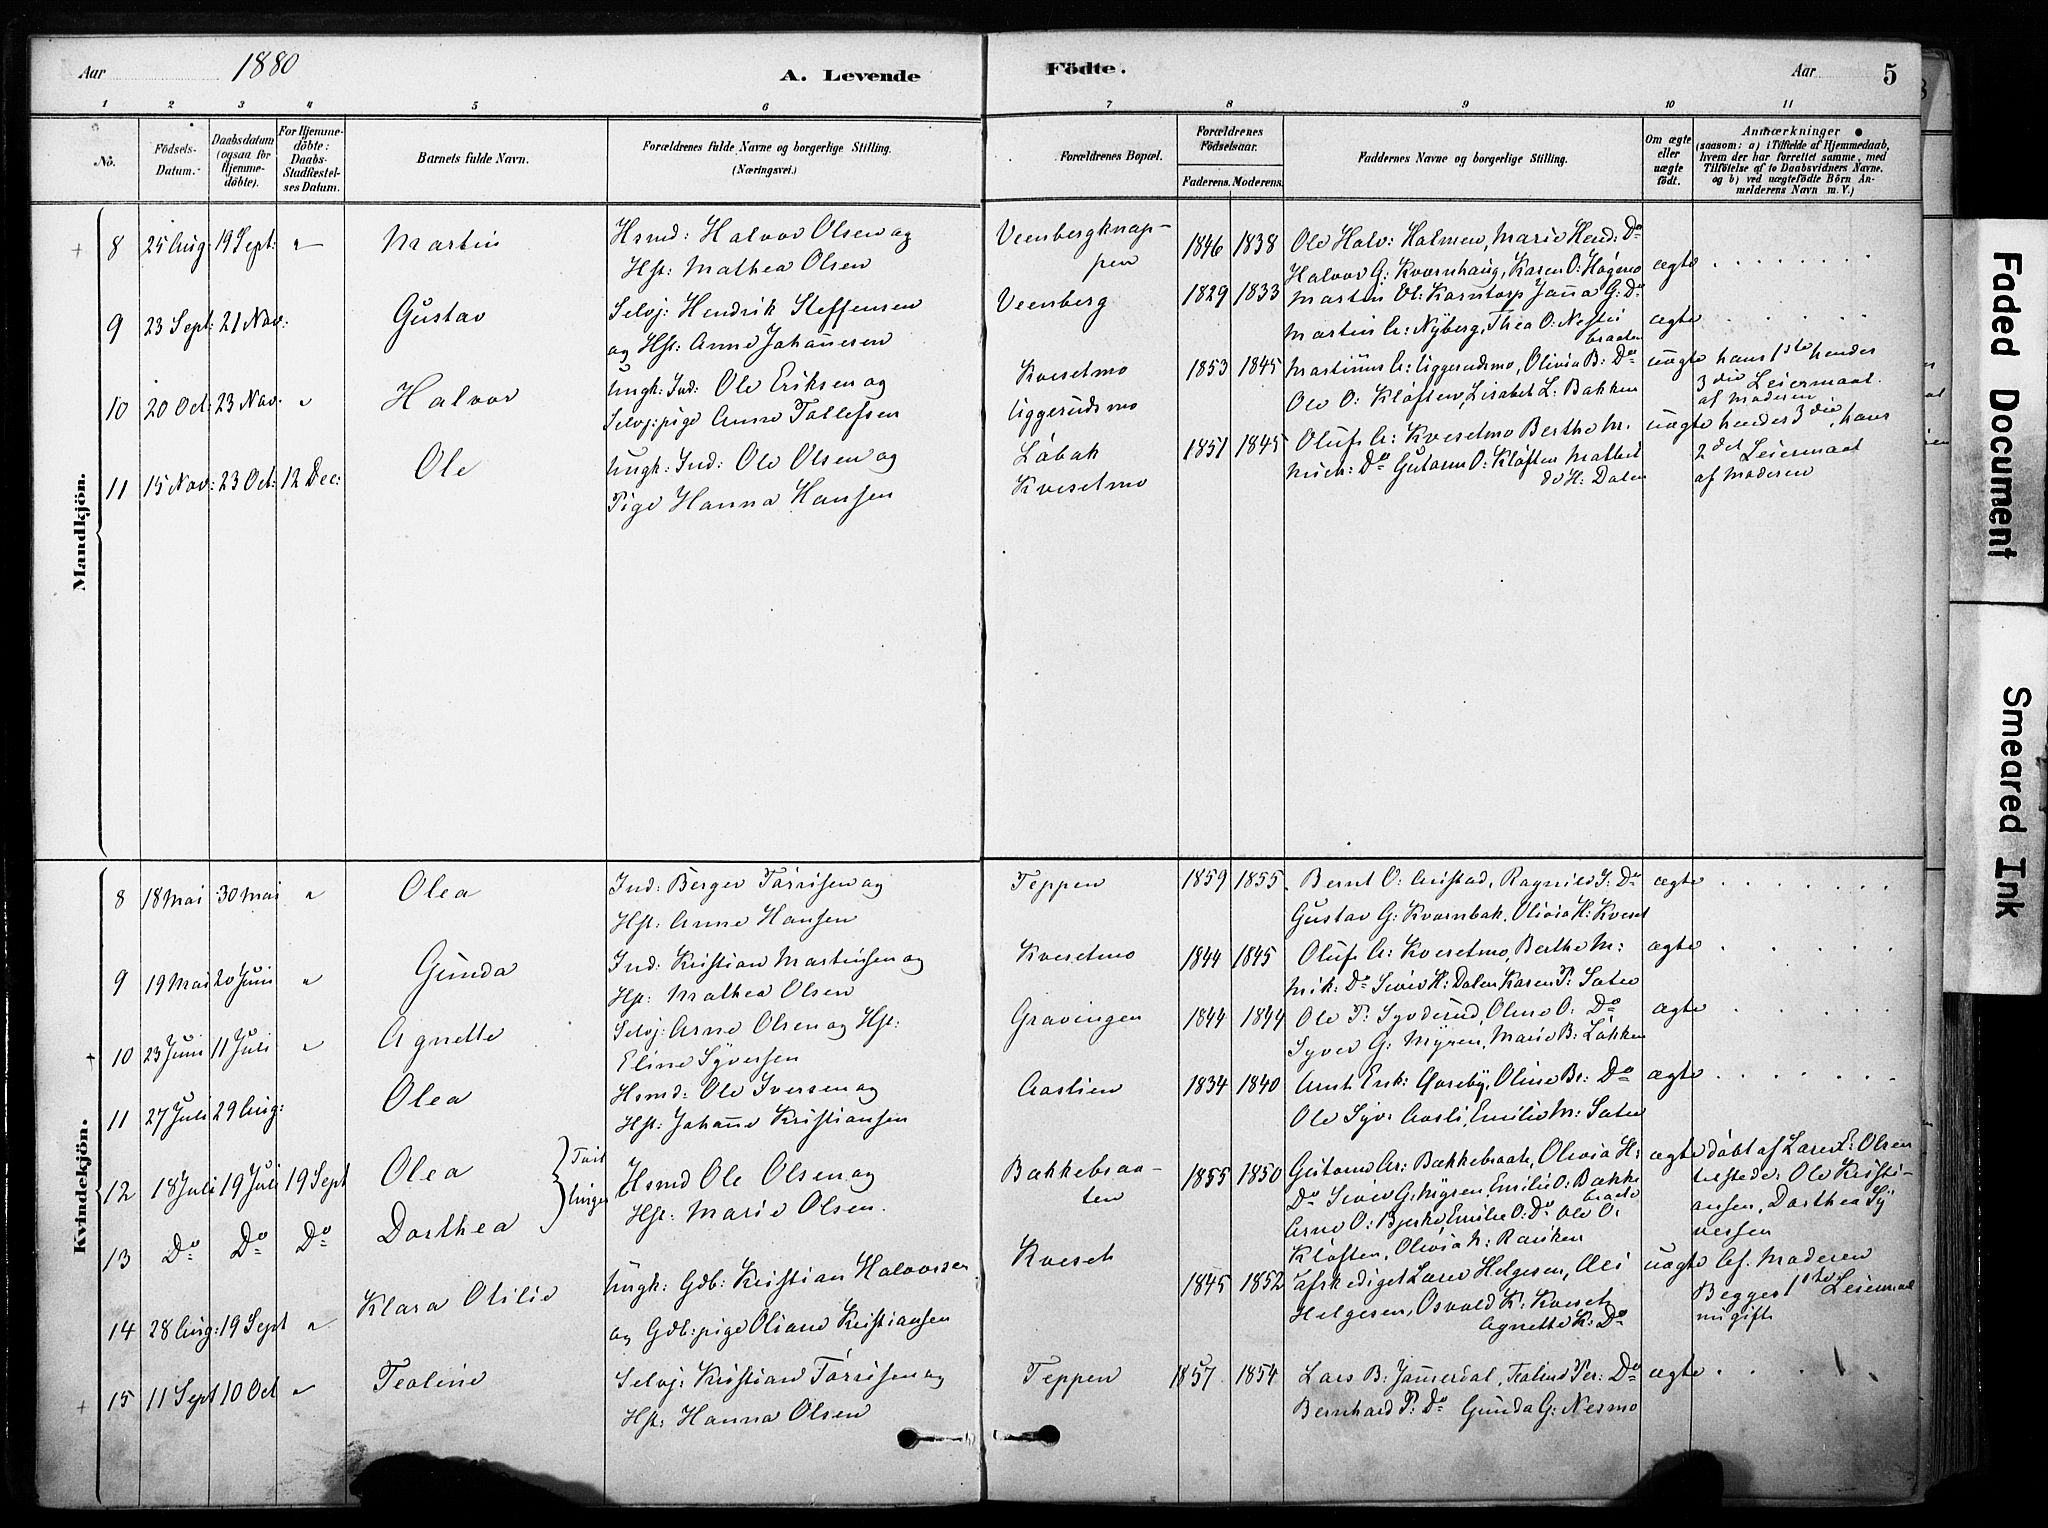 Aar 1880 A. Levende Födte. Aar 5
1 2 3 4 5 6 7 8 9 10 11
No.
Födsels-
Datum.
Daabsdatum
(ogsaa for
Hjemme-
döbte).
For Hjemme-
döbte:
Daabs-
Stadfæstel-
ses Datum.
Barnets fulde Navn.
Forældrenes fulde Navne og borgerlige Stilling.
(Næringsvei.)
Forældrenes Bopæl.
Forældrenes
Födselsaar.
Faderens. Moderens.
Faddernes Navne og borgerlige Stilling.
Om ægte
eller
uægte
födt.
Anmærkninger
(saasom: a) i Tilfælde af Hjemmedaab,
hvem der har forrettet samme, med
Tilföielse af to Daabsvidners Navne.
og b) ved uægtefödte Börn An-
melderens Navn m. V.)
Mandkjön.
8 25 Aug: 19 Sept: " Martin
Hsmd: Halvor Olsen og
Hst: Mathea Olsen
Veenbergknap-
pen
1846 1838
Ole Halv: Holmen, Marie Hend: Do
Halvor G: Kvernhaug, Karen O: Høgmo
ægte
9 23 Sept: 21 Nov: Gustav
Selvj: Hendrik Steffensen
og Hst: Anne Johannesen
Veenberg
1829 1833
Martin Ol: Korntorp Janna G: Do
Martin A: Nyberg, Thea O: Nestei
braaten
ægte
10 20 Oct: 23 Nov. " Halvor
Ungk: Ind: Ole Eriksen og
Selvj:pige Anne Tollefsen
Kvesetmo
Uggerudsmo
1853 1845
Martinus A: Uggerudsmo, Olivia B: Do
Ole O: Kløften, Lisabet L: Bakken
uægte hans 1ste hendes
3die Leiermaal.
af Moderen
11 15 Nov: 23 Oct: 12 Dec: Ole
Ungk: Ind: Ole Olsen og
Pige Hanna Hansen
Löbak
Kvesetmo
1851 1845
Oluf A: Kvesetmo Berthe M.
Mich: Do Gutorm O: Kløften Mathil
de H: Dalen
uægte hendes 3die, hans
2det Leiermaal
af Moderen
Kvindekjön.
8 18 Mai 30 Mai " Olea
Ind: Berger Törrisen og
Hst: Anne Hansen
Teppen
1859 1855
Bernt O: Austad, Ragnild J: Do
Gustav G: Kvernbak, Olivia H: Kveset
ægte
9 19 Mai 20 Juni " Gunda
Ind: Kristian Martinsen og
Hst: Mathea Olsen
Kvesetmo
1844 1845
Oluf A: Kvesetmo, Berthe M:
Mik: Do Siver H: Dalen Karen P: Sater
ægte
10 23 Juni 11 Juli " Agnette
Selvj: Arne Olsen og Hst:
Eline Syversen
Gravingen
1844 1844
Ole P: Syverud, Oline O: Do
Syver G: Myren, Marie B: Løkken
ægte
11 27 Juli 29 Aug: Olea
Hsmd: Ole Iversen og
Hst: Johanne Kristiansen
Aaslien
1834 1840
Arnt Erik: Goreby, Oline Br: Do
Ole Syv: Aasli, Emilie M: Sater
ægte
12 18 Juli 19 Juli 19 Sept Olea
Tvil
linger
Hsmd Ole Olsen og
Hst: Marie Olsen.
Bakkebraa-
ten
1855 1850
Gutorm Ar: Bakkebraate, Olivia H:
Do Siver G: Myren, Emilie O. Bakke
braate
Arne O: Bjerke Emilie O: Do Ole O.
Kløften, Olivia N: Rauken
ægte döbt af Lars E: Olsen
tilstede: Ole Kristi-
ansen, Dorthea Sy
versen
13 Do Do Do Dorthea
14 28 Aug: 19 Sept " Klara Otilie
Ungk: Gdb: Kristian Halvorsen
og Gdb:pige Oliane Kristiansen
Kveset
1845 1852
Afskediget Lærer Helgesen, Oli
Helgesen, Osvald K: Kveset
Agnette K: Do
uægte Af Moderen
Begges 1ste Leiermaal
ugift
15 11 Sept 10 Oct " Teoline
Selvj: Kristian Törrisen og
Hst: Hanna Olsen
Teppen
1857 1854
Lars B: Jammerdal, Teoline Per: Do
Bernhard P: Do Gunda G: Nesmo
ægte
Faded Document
Smeared Ink